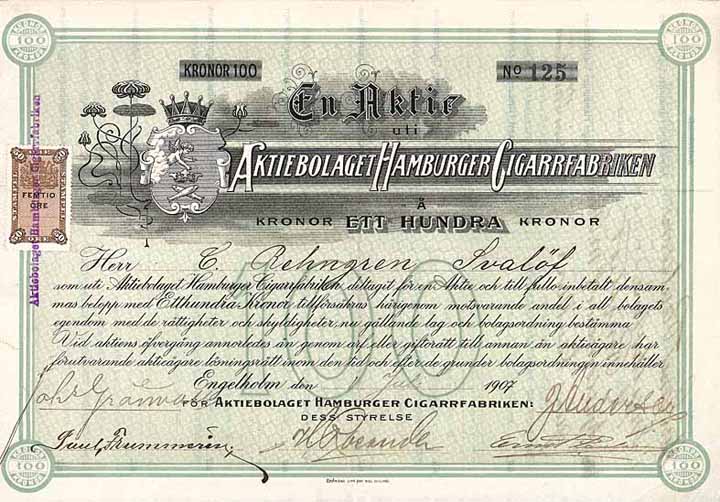 KRONOR 100
No 125
En Aktie
uti
AKTIEBOLAGET HAMBURGER CIGARRFABRIKEN
Å
KRONOR ETT HUNDRA KRONOR
Herr C. Rehngren Svalöf
som uti Aktiebolaget Hamburger Cigarrfabriken deltagit för en Aktie och till fullo inbetalt densam-
mas belopp med Etthundra Kronor tillförsäkras härigenom motsvarande andel i all bolagets
egendom med de rättigheter och skyldigheter nu gällande lag och bolagsordning bestämma
Vid aktiens öfvergång annorledes än genom arf eller giftorätt till annan än aktieägare har
förutvarande aktieägare lösningsrätt inom den tid och efter de grunder bolagsordningen innehåller
Engelholm den 1907
FÖR AKTIEBOLAGET HAMBURGER CIGARRFABRIKEN:
DESS STYRELSE
100
KRONOR
100
KRONOR
KRONOR
100
KRONOR
KRONOR
100
KRONOR
KRONOR
100
KRONOR
Aktiebolaget Hamburger Cigarrfabriken
FEMTIO
ÖRE
50
50